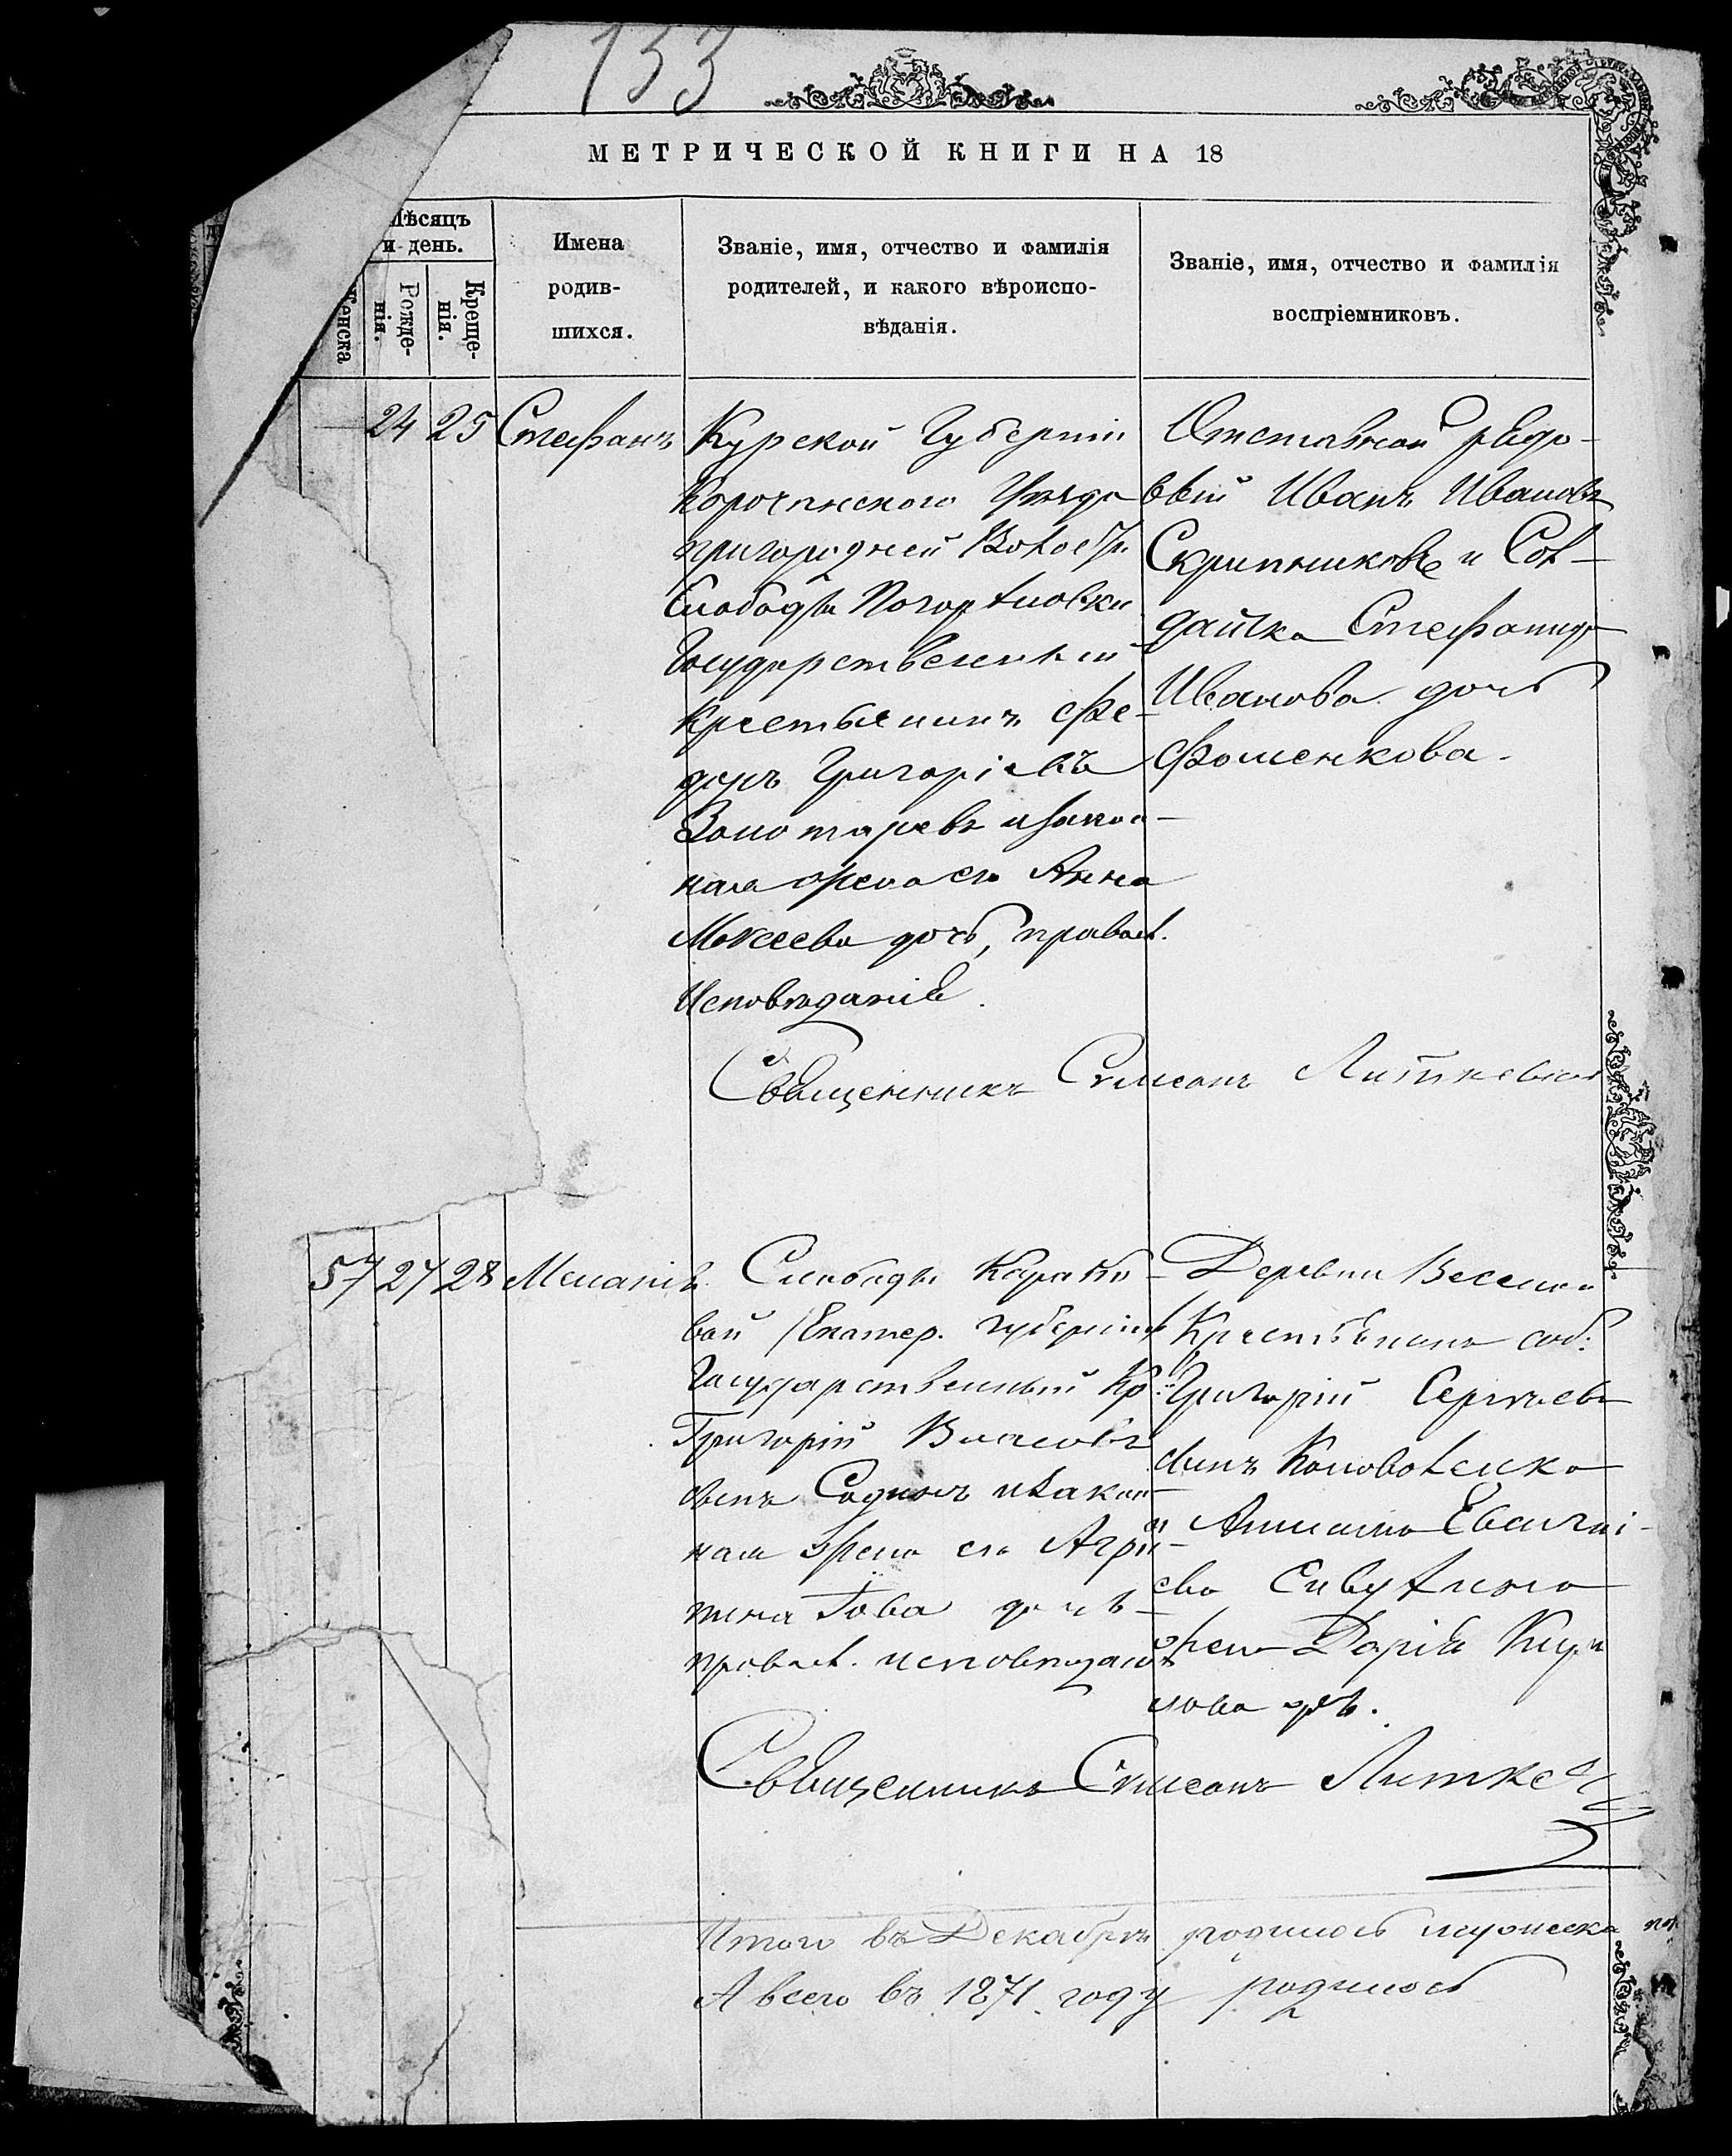 153
МЕТРИЧЕСКОЙ КНИГИ НА 18
Мѣсяцъ и день.
Женска
Рожде-
нія.
Креще-
нія.
Имена
родив-
шихся.
Званіе, имя, отчество и фамилія
родителей, и какого вѣроиспо-
вѣданія.
Званіе, имя, отчество и фамилія
воспріемниковъ.
24 25 Стефанъ
Курской Губерніи
Корочанского Уѣзда
пригородней Волости
Слободы Погореловки
Государственный
Крестьянинъ Фе-
доръ Григоріевъ
Золотаревъ и закон-
ная жена его Анна
Мокеева дочь, правосл.
Исповѣданія.
Отставной рядо-
вый Иванъ Ивановъ
Скрипниковъ и Сол-
датка Стефанида
Иванова дочь
Фоменкова.
Священникъ Симеонъ
57 27 28 Меланія
Слободы Карако-
вой Екатер. губерніи
Государственный Кр.
Григорій Власовъ
сынъ и закон-
ная жена его Агрип-
пина дочь
правосл. исповѣданія
Деревни Веселой
Крестьянинъ соб.
Григорій Сергѣевъ
сынъ Коноваленко
и
жена Дарія Кири
лова дочь.
Священникъ Симеонъ
Итого въ Декабрѣ родилось мужеска пол.
А всего въ 1871 году родилось